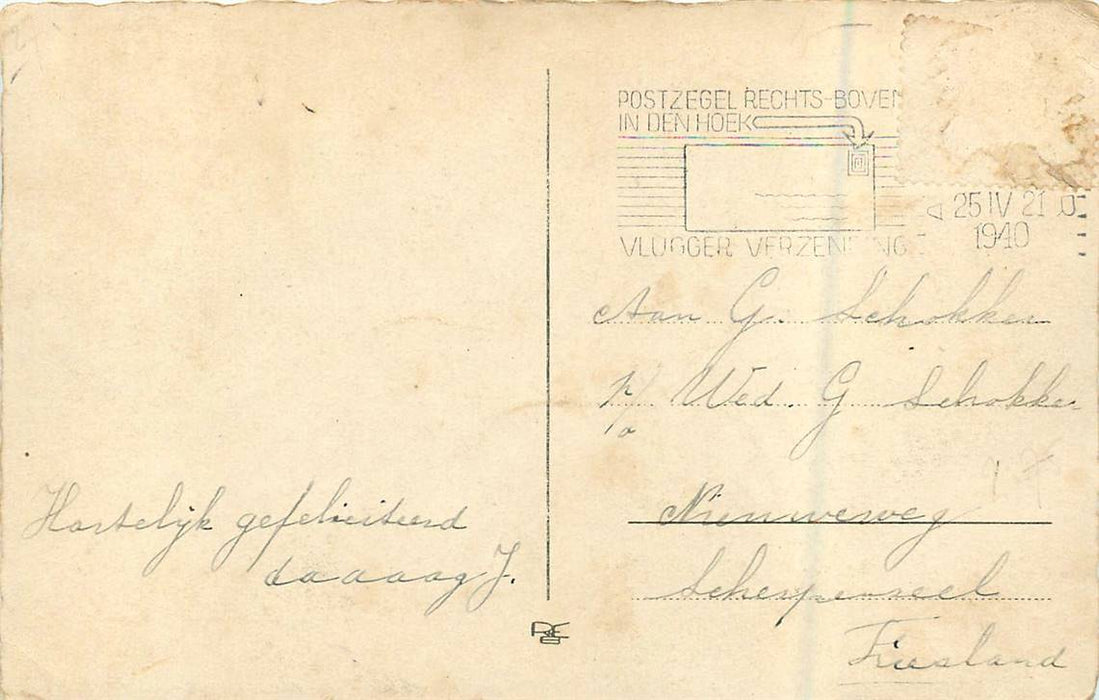 POSTZEGEL RECHTS-BOVEN
IN DEN HOEK
VLUGGER VERZENDING
25 IV 21
1940
Aan G. Schokker
p/o Wed. G Schokker
Nieuweweg
Scherpenzeel
Friesland
Hartelijk gefeliciteerd
daaaag J.